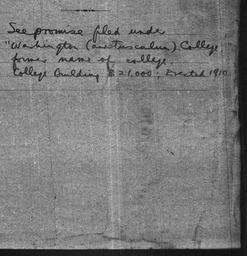 See promise filed under
"Washington (and Tusculum) College,"
former name of college.
College Building $21,000; Erected 1910